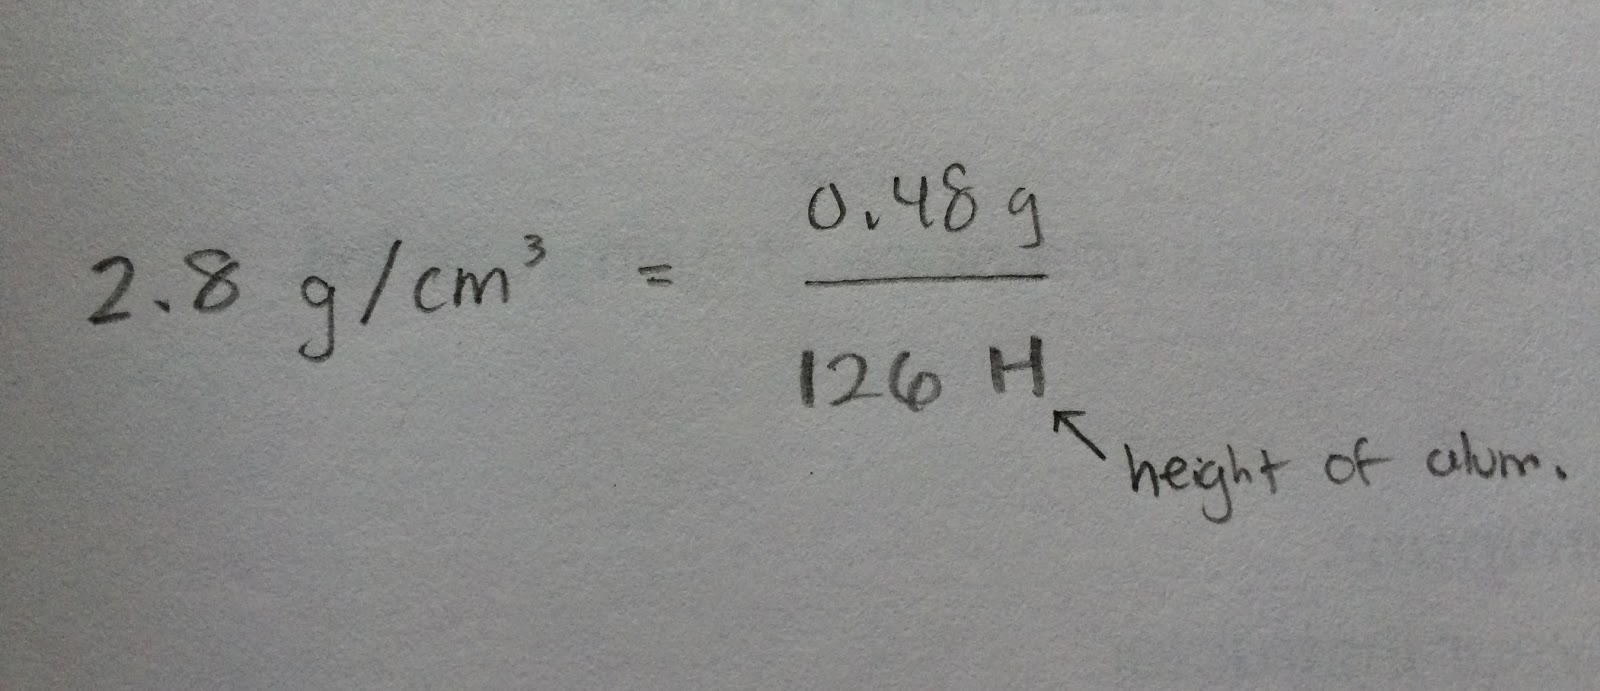 2.8 g/cm³ = 0.48 g
126 H
height of alum.